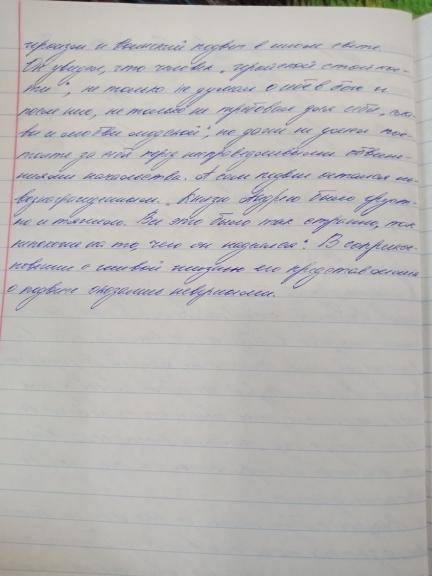 героизм и воинский подвиг в ином свете.
Он увидел, что человек „геройской стойкос-
ти", не только не думал о себе в бою и
после него, не только не требовал для себя „сла-
вы и любви людской", но даже не умел пос-
тоять за себя перед несправедливыми обвине-
ниями начальства. А сам подвиг остался не-
вознагражденным. „Князю Андрею было груст-
но и тяжело. Всё это было так странно, так
непохоже на то, чего он надеялся". В соприкос-
новении с живой жизнью его представления
о подвиге оказались неверными.